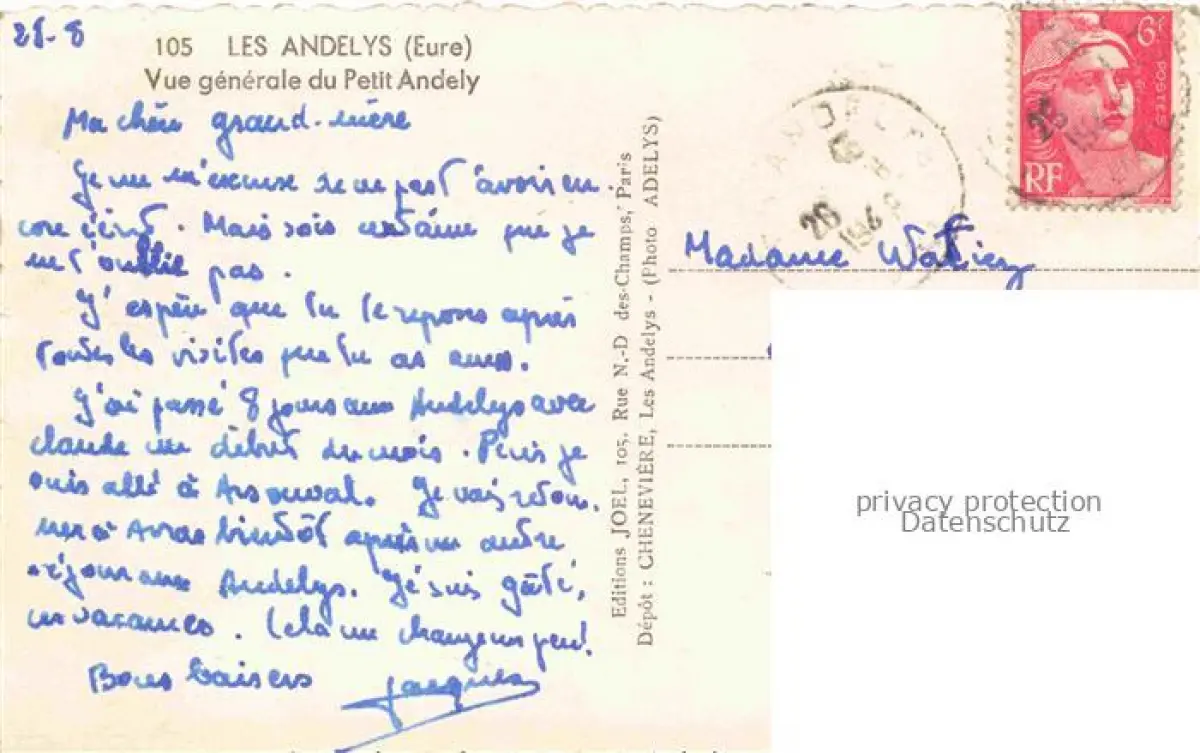 28-8
105 LES ANDELYS (Eure)
Vue générale du Petit Andely
Ma chère grand-mère
Je m'excuse de ne pas t'avoir en-
core écrit. Mais sois certaine que je
ne t'oublie pas.
J'espère que tu te reposes après
toutes les visites que tu as eues.
J'ai passé 8 jours aux Andelys avec
Claude au début du mois. Puis je
suis allé à Arsonval. Je vais retour-
ner à Arras bientôt après un autre
séjour aux Andelys. Je suis gâté,
en vacances. Cela me change un peu!
Bons baisers Jacques
Editions JOEL, 105, Rue N.-D des-Champs, Paris
Dépôt : CHENEVIÈRE, Les Andelys - (Photo ADELYS)
6F
POSTES
RF
26
Madame Watiez
privacy protection
Datenschutz